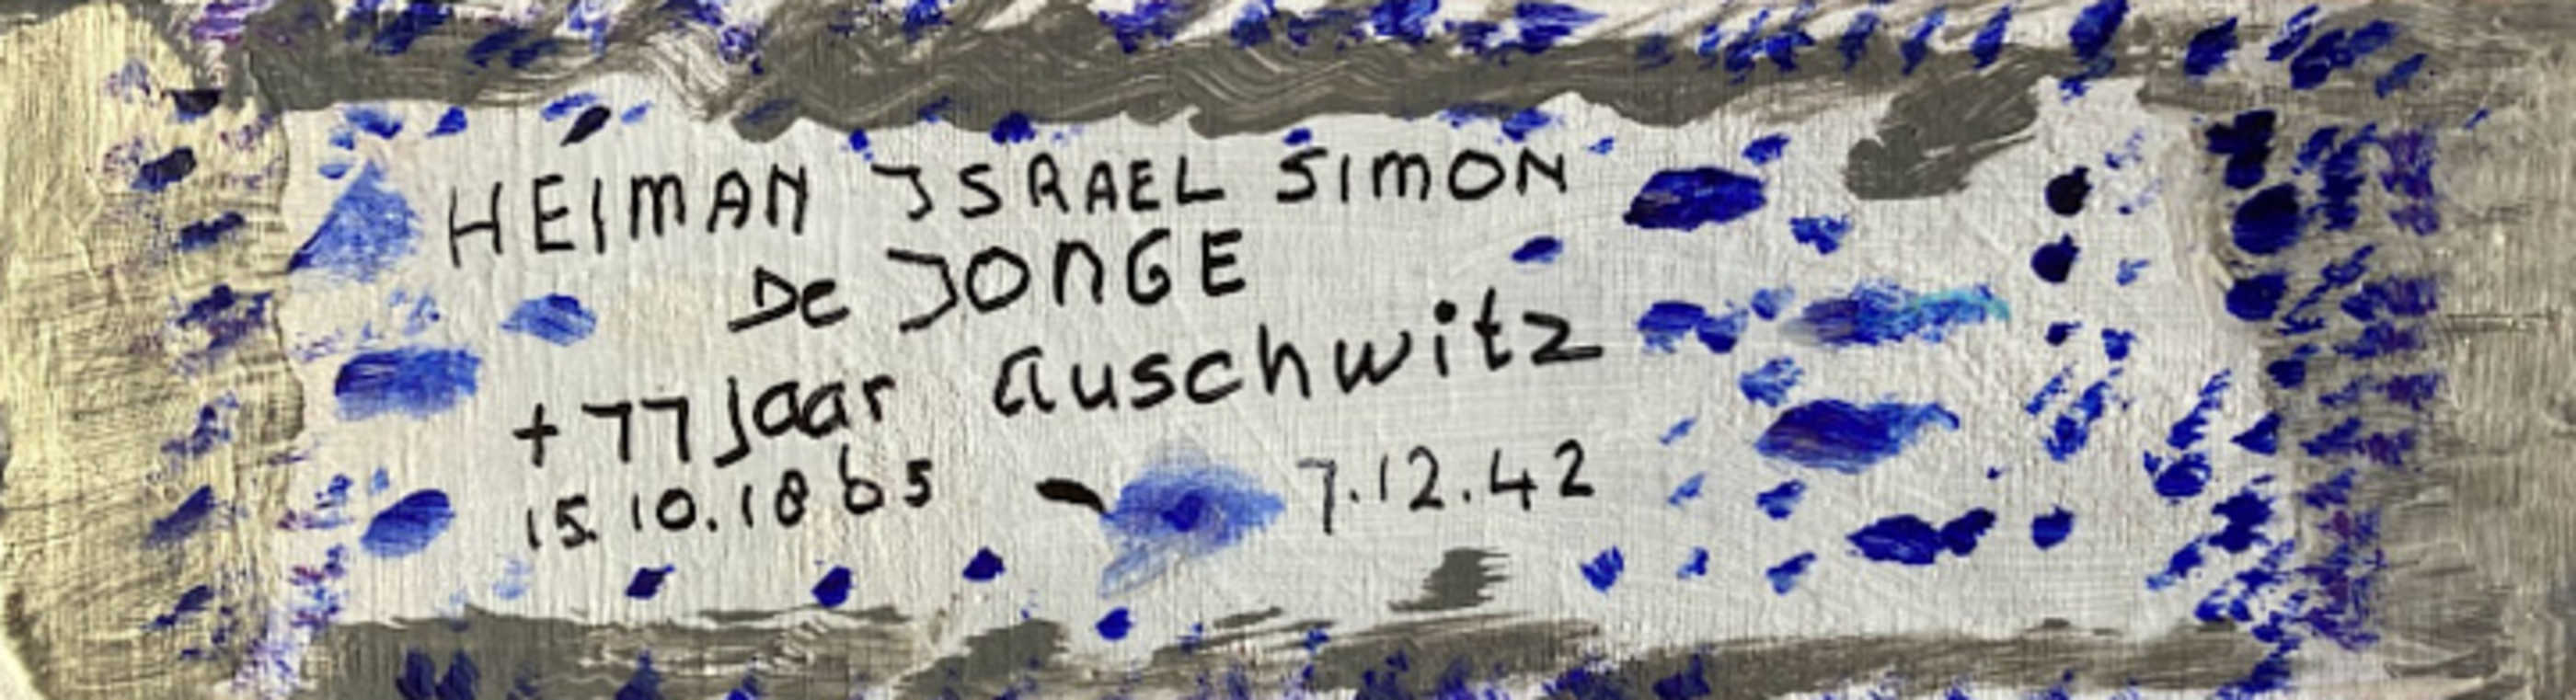 HEIMAN ISRAEL SIMON
De JONGE
+ 77 jaar Auschwitz
15.10.1865 - 7.12.42